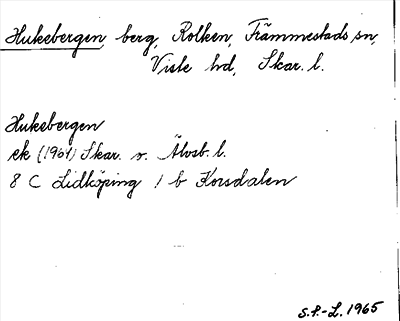 Hukebergen, berg, Rolken, Främmestads sn,
Viste hd, Skar. l.
Hukebergen
ek (1961) Skar. o. Älvsb. l.
8 C Lidköping 1 b Korsdalen
S.F.-L. 1965